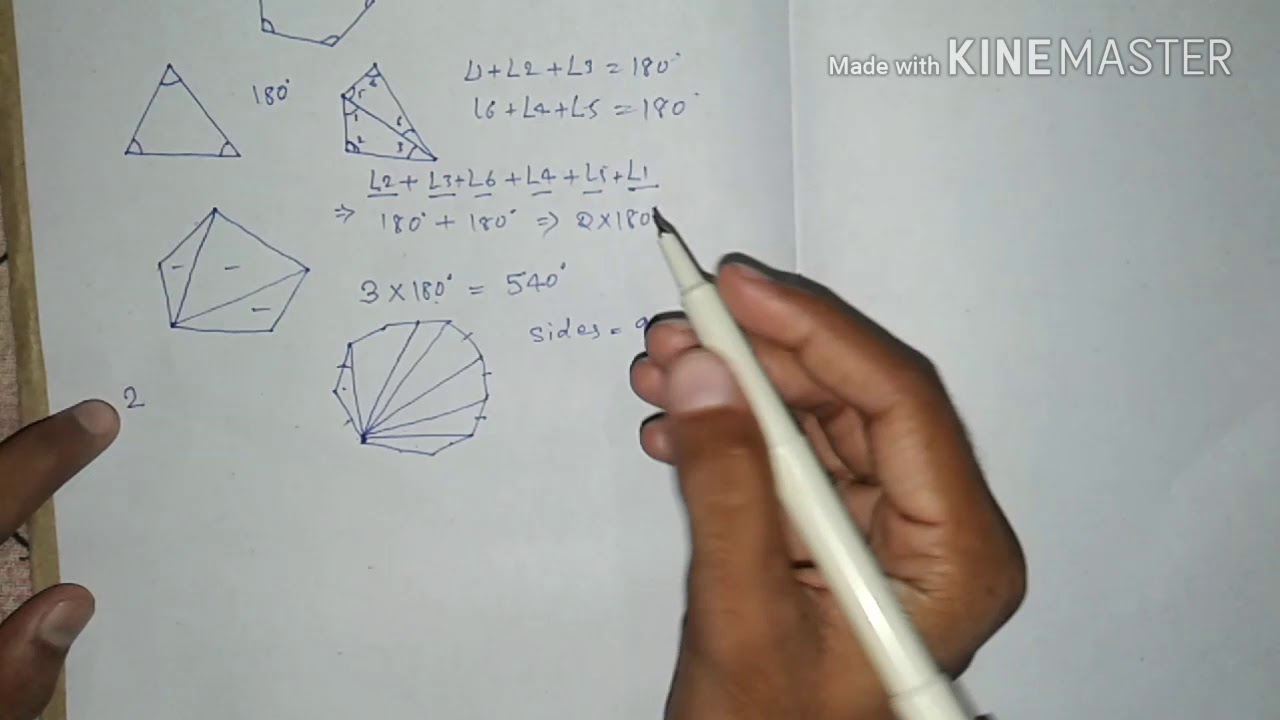 Made with KINEMASTER
180°
∠1+∠2+∠3 = 180°
∠6+∠4+∠5 = 180°
5 6
1 6
2 3
∠2+ ∠3+∠6 +∠4 +∠5+∠1
⇒ 180° + 180° ⇒ 2×180
3 × 180° = 540°
sides = 9
2